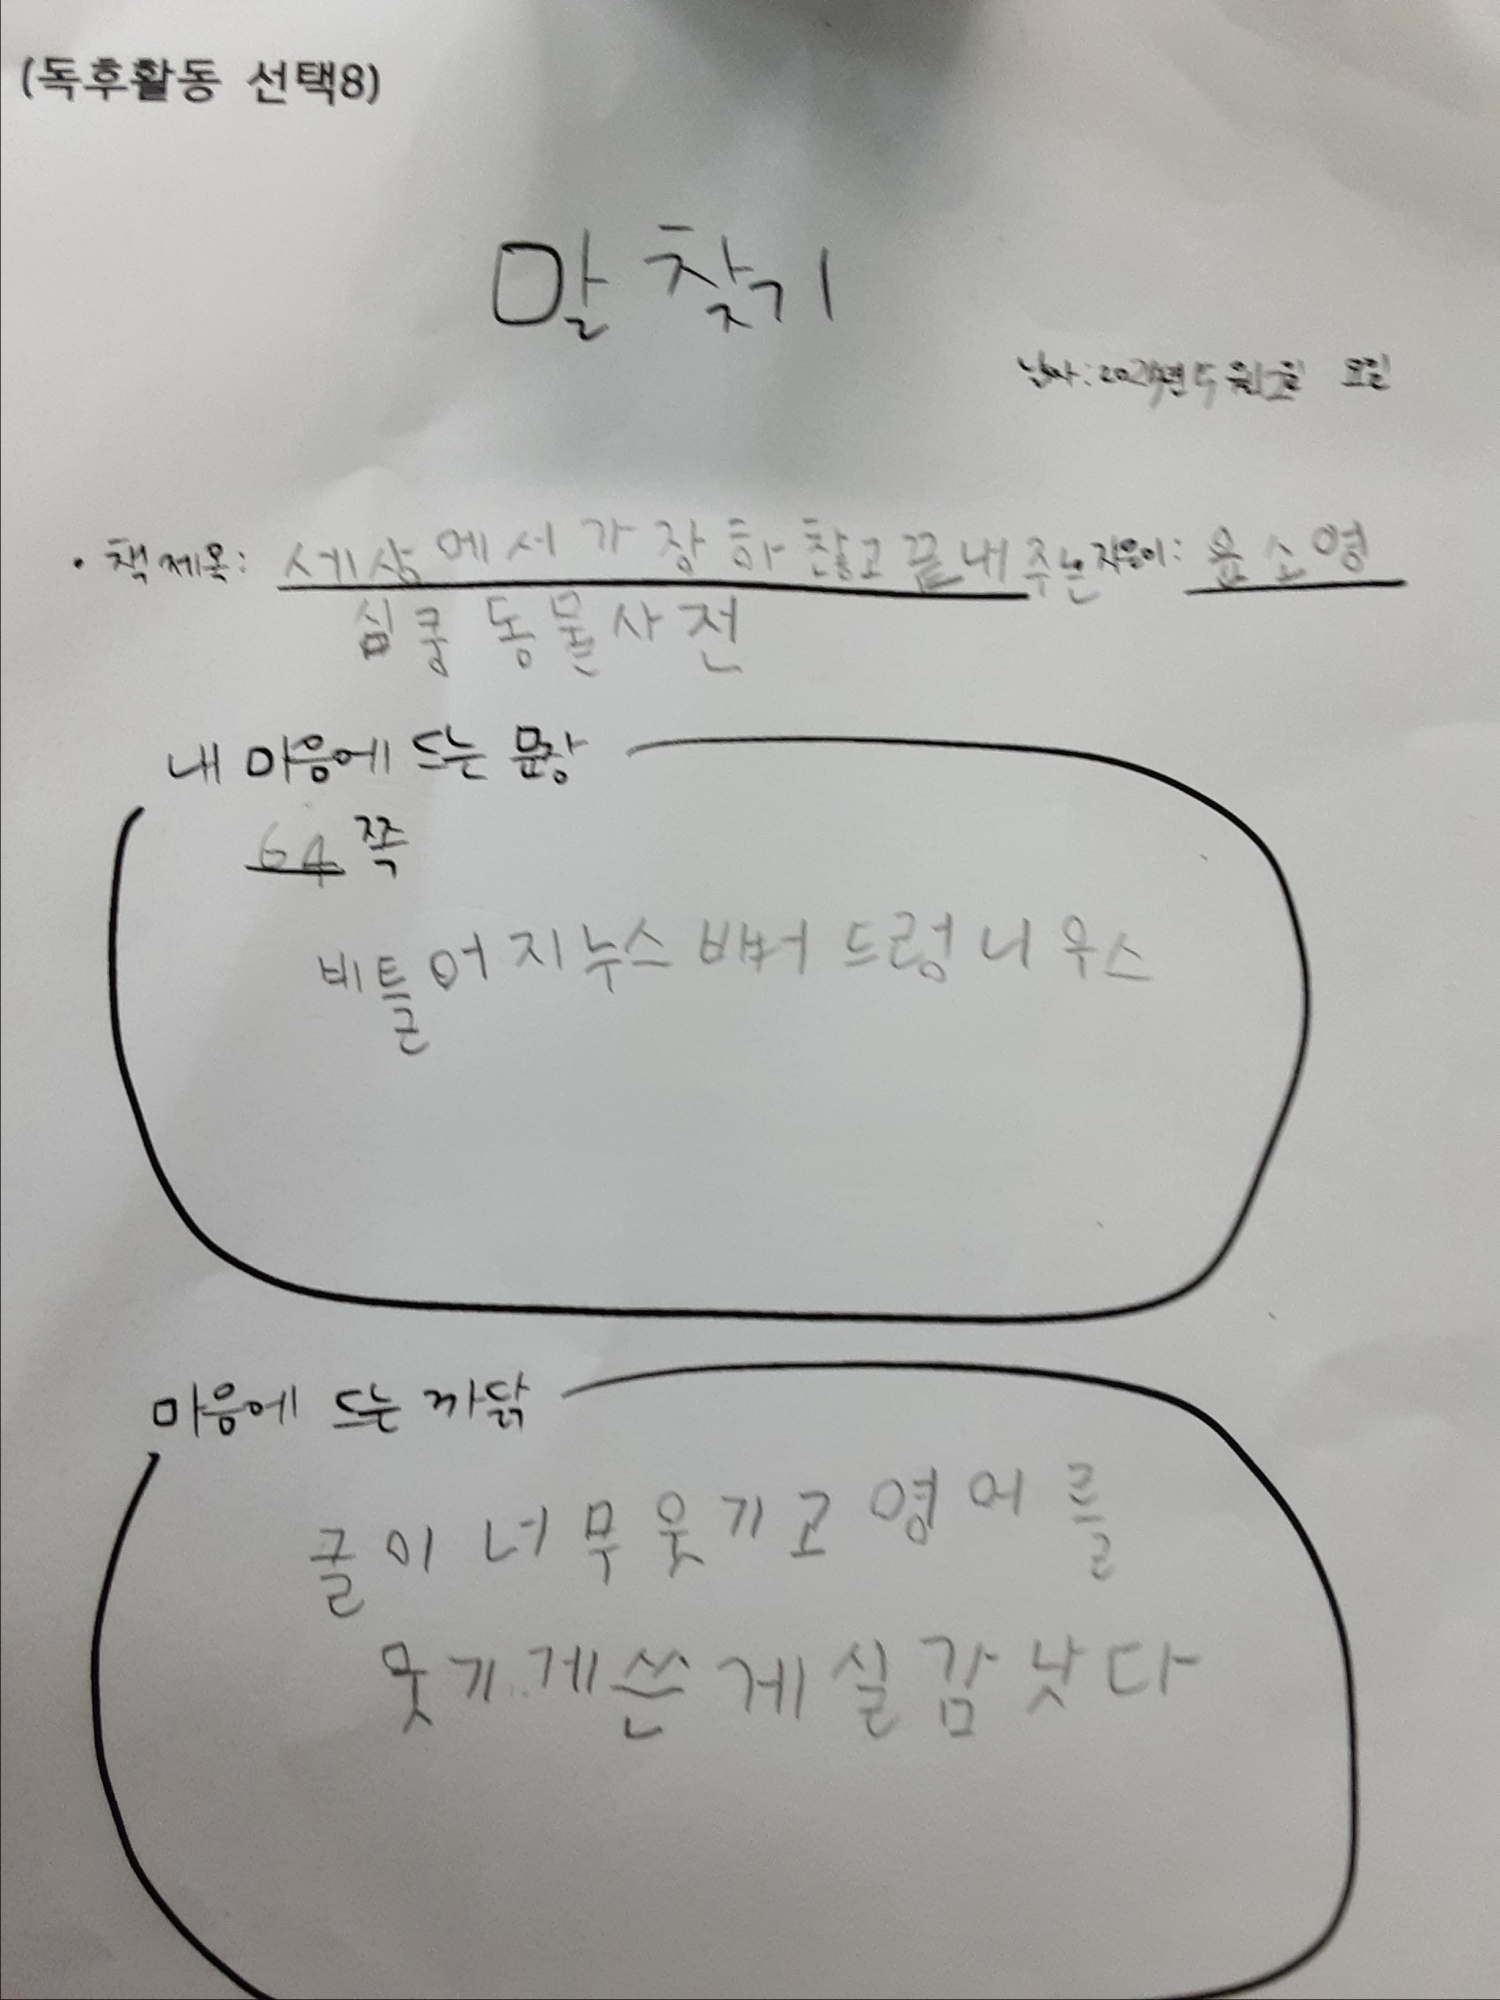 (독후활동 선택8)
말 찾기
날짜: 202 년 5월 일 요일
• 책 제목: 세상에서 가장 하찮고 끝내주는 지은이: 윤소영
심쿵 동물사전
내 마음에 드는 문장
64 쪽
비틀어지누스 배버드렁니우스
마음에 드는 까닭
글이 너무 웃기고 영어를
웃기게 쓴게 실감낫다